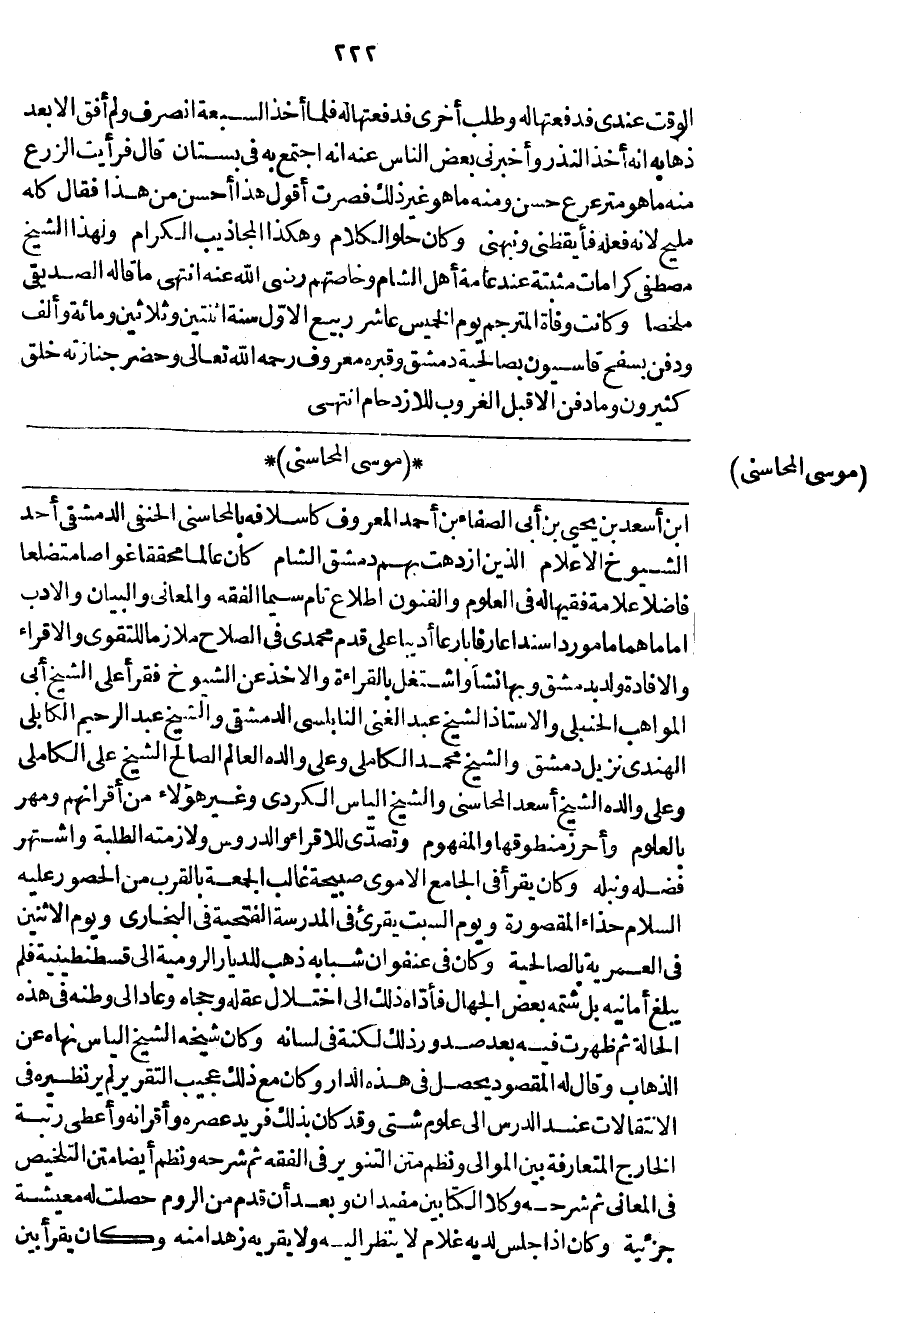 ٢٢٢
الوقت عندى فدفعتها له وطلب أخرى فدفعتها له فلما أخذ السبعة انصرف ولم أفق الا بعد
ذهابه انه أخذ النذر وأخبرنى بعض الناس عنه انه اجتمع به فى بستان قال فرأيت الزرع
منه ما هو مترعرع حسن ومنه ما هو غير ذلك فصرت أقول هذا أحسن من هذا فقال كله
مليح لانه فعله فأيقظنى ونبهنى وكان حلو الكلام وهكذا المجاذيب الكرام ولهذا الشيخ
مصطفى كرامات مثبتة عند عامة أهل الشام وخاصتهم رضى الله عنه انتهى ما قاله الصديقى
ملخصا وكانت وفاة المترجم يوم الخميس عاشر ربيع الاوّل سنة اثنتين وثلاثين ومائة وألف
ودفن بسفح قاسيون بصالحية دمشق وقبره معروف رحمه الله تعالى وحضر جنازته خلق
كثيرون وما دفن الا قبل الغروب للازدحام انتهى
(موسى المحاسنى)
*(موسى المحاسنى)*
ابن أسعد بن يحيى بن أبى الصفاء بن أحمد المعروف كاسلافه بالمحاسنى الحنفى الدمشقى أحد
الشيوخ الاعلام الذين ازدهت بهم دمشق الشام كان عالما محققا غواصا متضلعا
فاضلا علامة فقيها له فى العلوم والفنون اطلاع تام سيما الفقه والمعانى والبيان والادب
اماما هماما مورد اسند اعارفا بارعا أديبا على قدم محمدى فى الصلاح ملازما للتقوى والاقراء
والافادة ولد بدمشق وبها نشأ واشتغل بالقراءة والاخذ عن الشيوخ فقرأ على الشيخ أبى
المواهب الحنبلى والاستاذ الشيخ عبد الغنى النابلسى الدمشقى والشيخ عبد الرحيم الكابلى
الهندى نزيل دمشق والشيخ محمد الكاملى وعلى والده العالم الصالح الشيخ على الكاملى
وعلى والده الشيخ أسعد المحاسنى والشيخ الياس الكردى وغير هؤلاء من أقرانهم ومهر
بالعلوم وأحرز منطوقها والمفهوم وتصدّى للاقراء والدروس ولازمته الطلبة واشتهر
فضله ونبله وكان يقرأ فى الجامع الاموى صبيحة غالب الجمعة بالقرب من الحصور عليه
السلام حذاء المقصورة ويوم السبت يقرئ فى المدرسة الفتحية فى البخارى ويوم الاثنين
فى العمرية بالصالحية وكان فى عنفوان شبابه ذهب للديار الرومية الى قسطنطينية فلم
يبلغ أمانيه بل شتمه بعض الجهال فأدّاه ذلك الى اختلال عقله وحجاه وعاد الى وطنه فى هذه
الحالة ثم ظهرت فيه بعد صدور ذلك لكنة فى لسانه وكان شيخه الشيخ الياس نهاه عن
الذهاب وقال له المقصود يحصل فى هذه الدار وكان مع ذلك عجيب التقرير لم ير نظيره فى
الانتقالات عند الدرس الى علوم شتى وقد كان بذلك فريد عصره وأقرانه وأعطى رتبة
الخارج المتعارفة بين الموالى ونظم متن التنوير فى الفقه ثم شرحه ونظم أيضا متن التلخيص
فى المعانى ثم شرحه وكلا الكتابين مفيدان وبعد أن قدم من الروم حصلت له معيشة
جزئية وكان اذا جلس لديه غلام لا ينظر اليه ولا يقربه زهدا منه وكان يقرأ بين